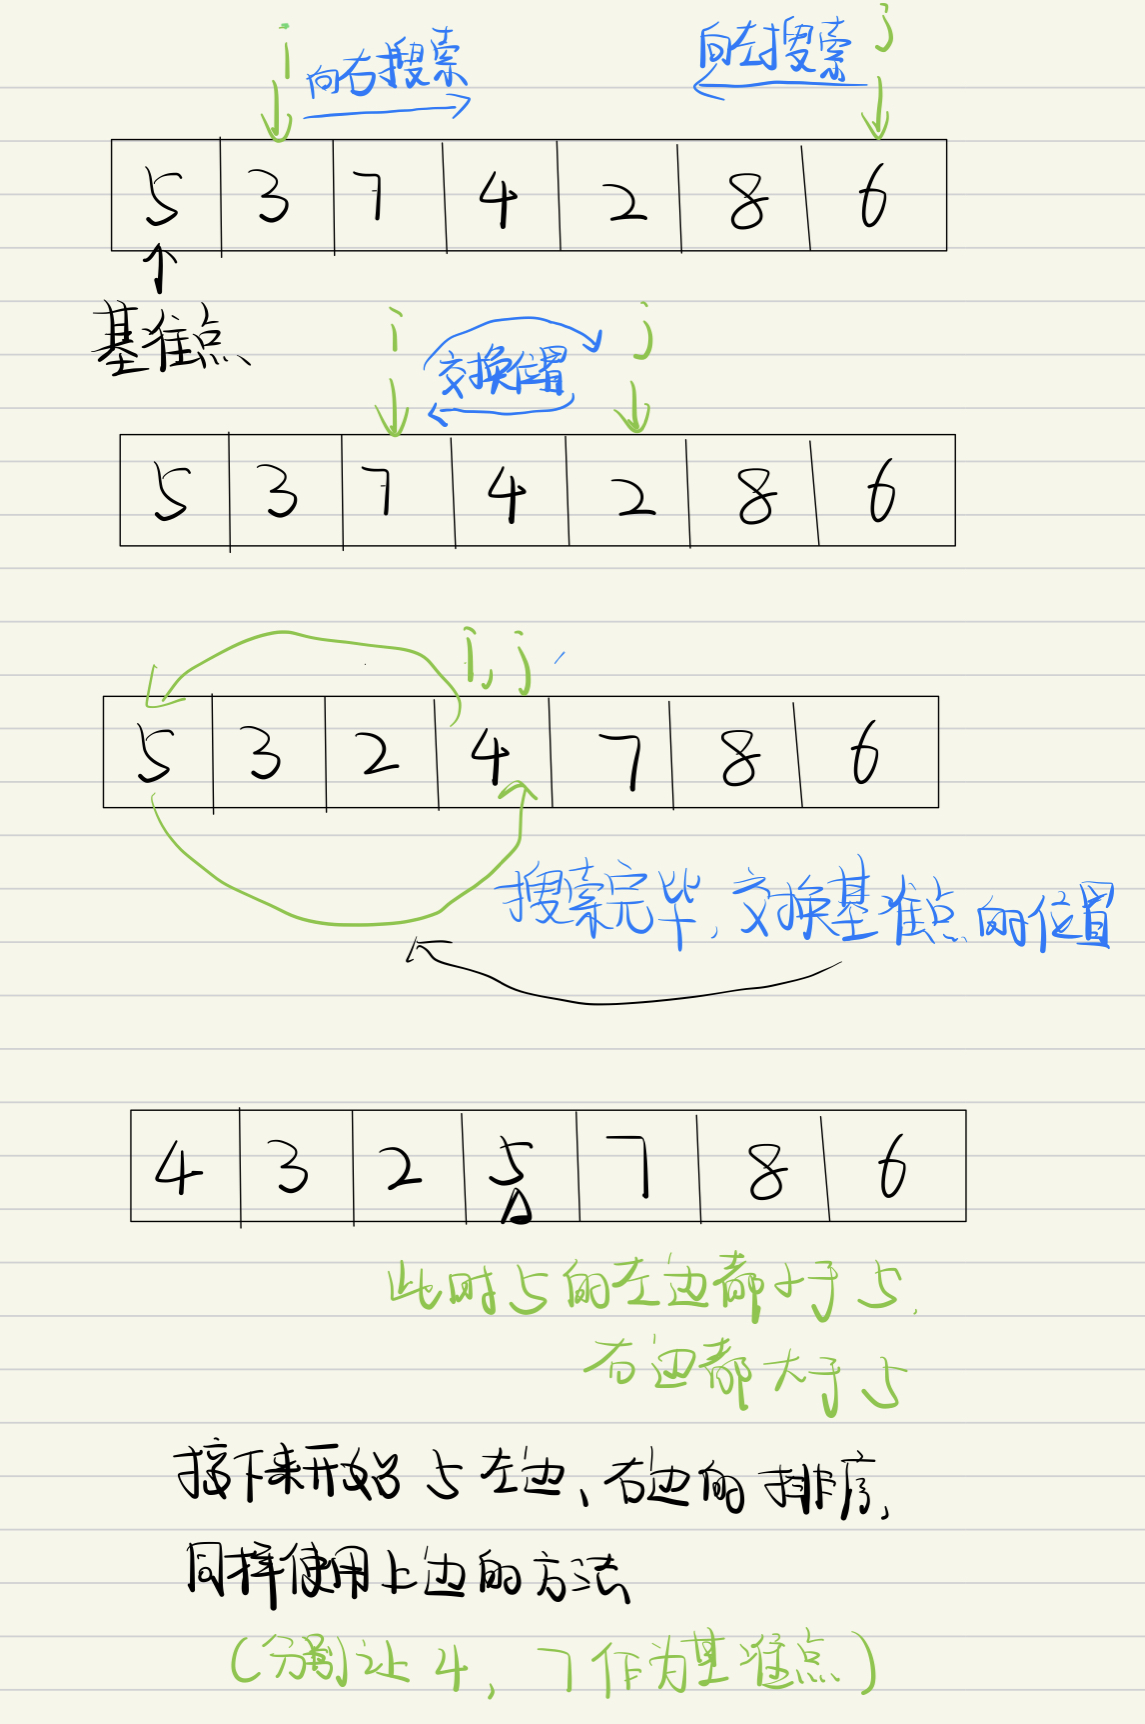 i 向右搜索 向左搜索 j
5 3 7 4 2 8 6
基准点
i 交换位置 j
5 3 7 4 2 8 6
i, j
5 3 2 4 7 8 6
搜索完毕, 交换基准点的位置
4 3 2 5 7 8 6
此时5的左边都小于5,
右边都大于5
接下来开始5左边、右边的排序,
同样使用上边的方法
(分别让4, 7作为基准点)